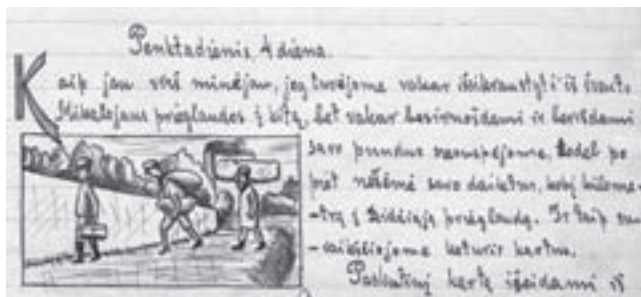 Penktadienis, 4 diena.
Kaip jau virš minėjau, jog turėjome vakar išsikraustyti iš švent.
Mikalojaus prieglaudos į kitą, bet vakar besiruošdami ir berišdami
savo pundus nesuspėjome, todėl po
piet nešėmė savo daiktus, kokį kilome-
-trą į didžiąją prieglaudą. Ir taip su
-vaikščiojome keturis kartus.
Paskutinį kartą išeidami iš